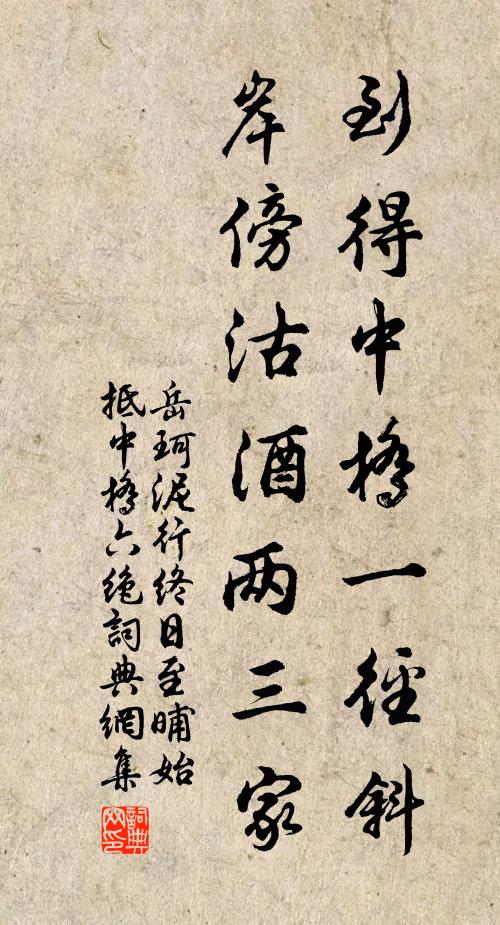 到得中橋一徑斜
岸傍沽酒两三家
岳珂泥行終日至晡始
抵中橋六絶詞典網集
詞典
网印